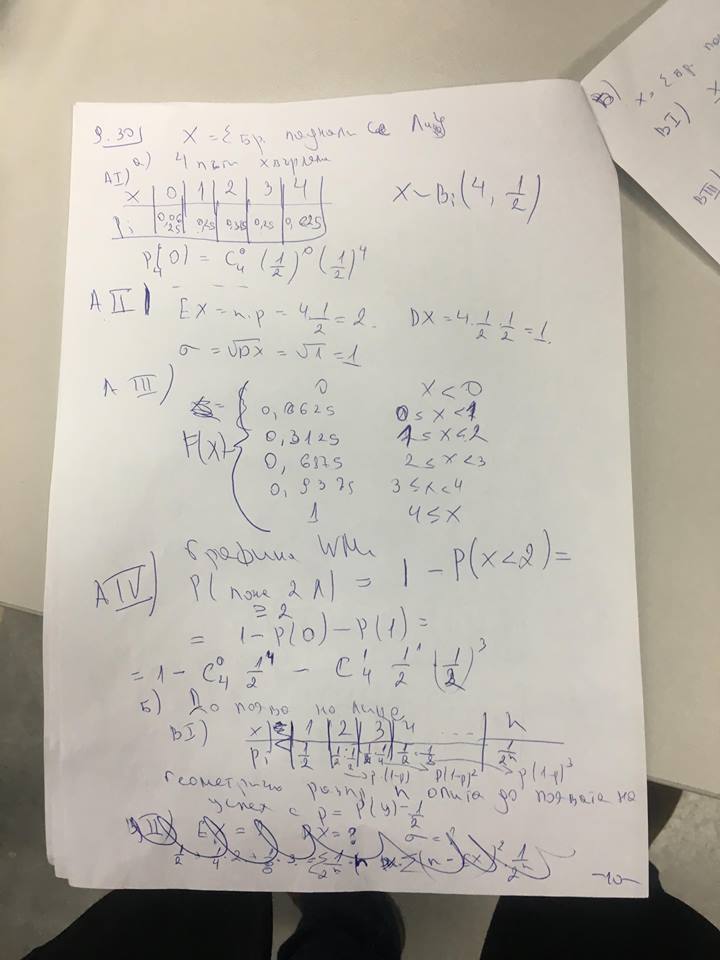 9.30) X = { Бр. паднали се Лиц}
а) 4 пъти хвърляне
AI)
X | 0 | 1 | 2 | 3 | 4 |
Pi | 0,0625 | 0,25 | 0,375 | 0,25 | 0,0625
X ~ Bi(4, 1/2)
P4(0) = C₄⁰ (1/2)⁰ (1/2)⁴
A II) EX = n.p = 4.1/2 = 2. DX = 4.1/2.1/2 = 1.
σ = √DX = √1 = 1
A III)
0 X < 0
0,0625 0 ≤ X < 1
F(X) = { 0,3125 1 ≤ X < 2
0,6875 2 ≤ X < 3
0,9375 3 ≤ X < 4
1 4 ≤ X
Графика
A IV) P( поне 2 Л) = 1 - P(X < 2) =
≥ 2
= 1 - P(0) - P(1) =
= 1 - C₄⁰ 1/2⁴ - C₄¹ 1/2¹ (1/2)³
Б) До поява на лице
BI) X | 1 | 2 | 3 | 4 ... | n
Pi | 1/2 | 1/2.1/2 | 1/2.1/4 | 1/2. | 1/2ⁿ
→ p.(1-p) → p(1-p)² → p(1-p)³
геометрично разпр n опита до появата на
успех с p = P(У) = 1/2
EX = DX = ? σ = ?
-10-
B)
X = { Бр.
BI)
X
BII)